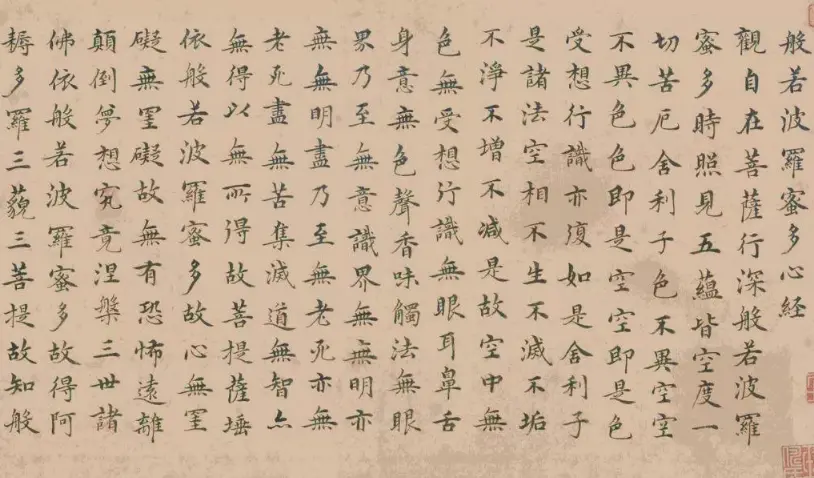 般若波羅蜜多心経
觀自在菩薩行深般若波羅
蜜多時照見五蘊皆空度一
切苦厄舍利子色不異空空
不異色色即是空空即是色
受想行識亦復如是舍利子
是諸法空相不生不滅不垢
不淨不增不減是故空中無
色無受想行識無眼耳鼻舌
身意無色聲香味觸法無眼
界乃至無意識界無無明亦
無無明盡乃至無老死亦無
老死盡無苦集滅道無智亦
無得以無所得故菩提薩埵
依般若波羅蜜多故心無罣
礙無罣礙故無有恐怖遠離
顛倒夢想究竟涅槃三世諸
佛依般若波羅蜜多故得阿
耨多羅三藐三菩提故知般